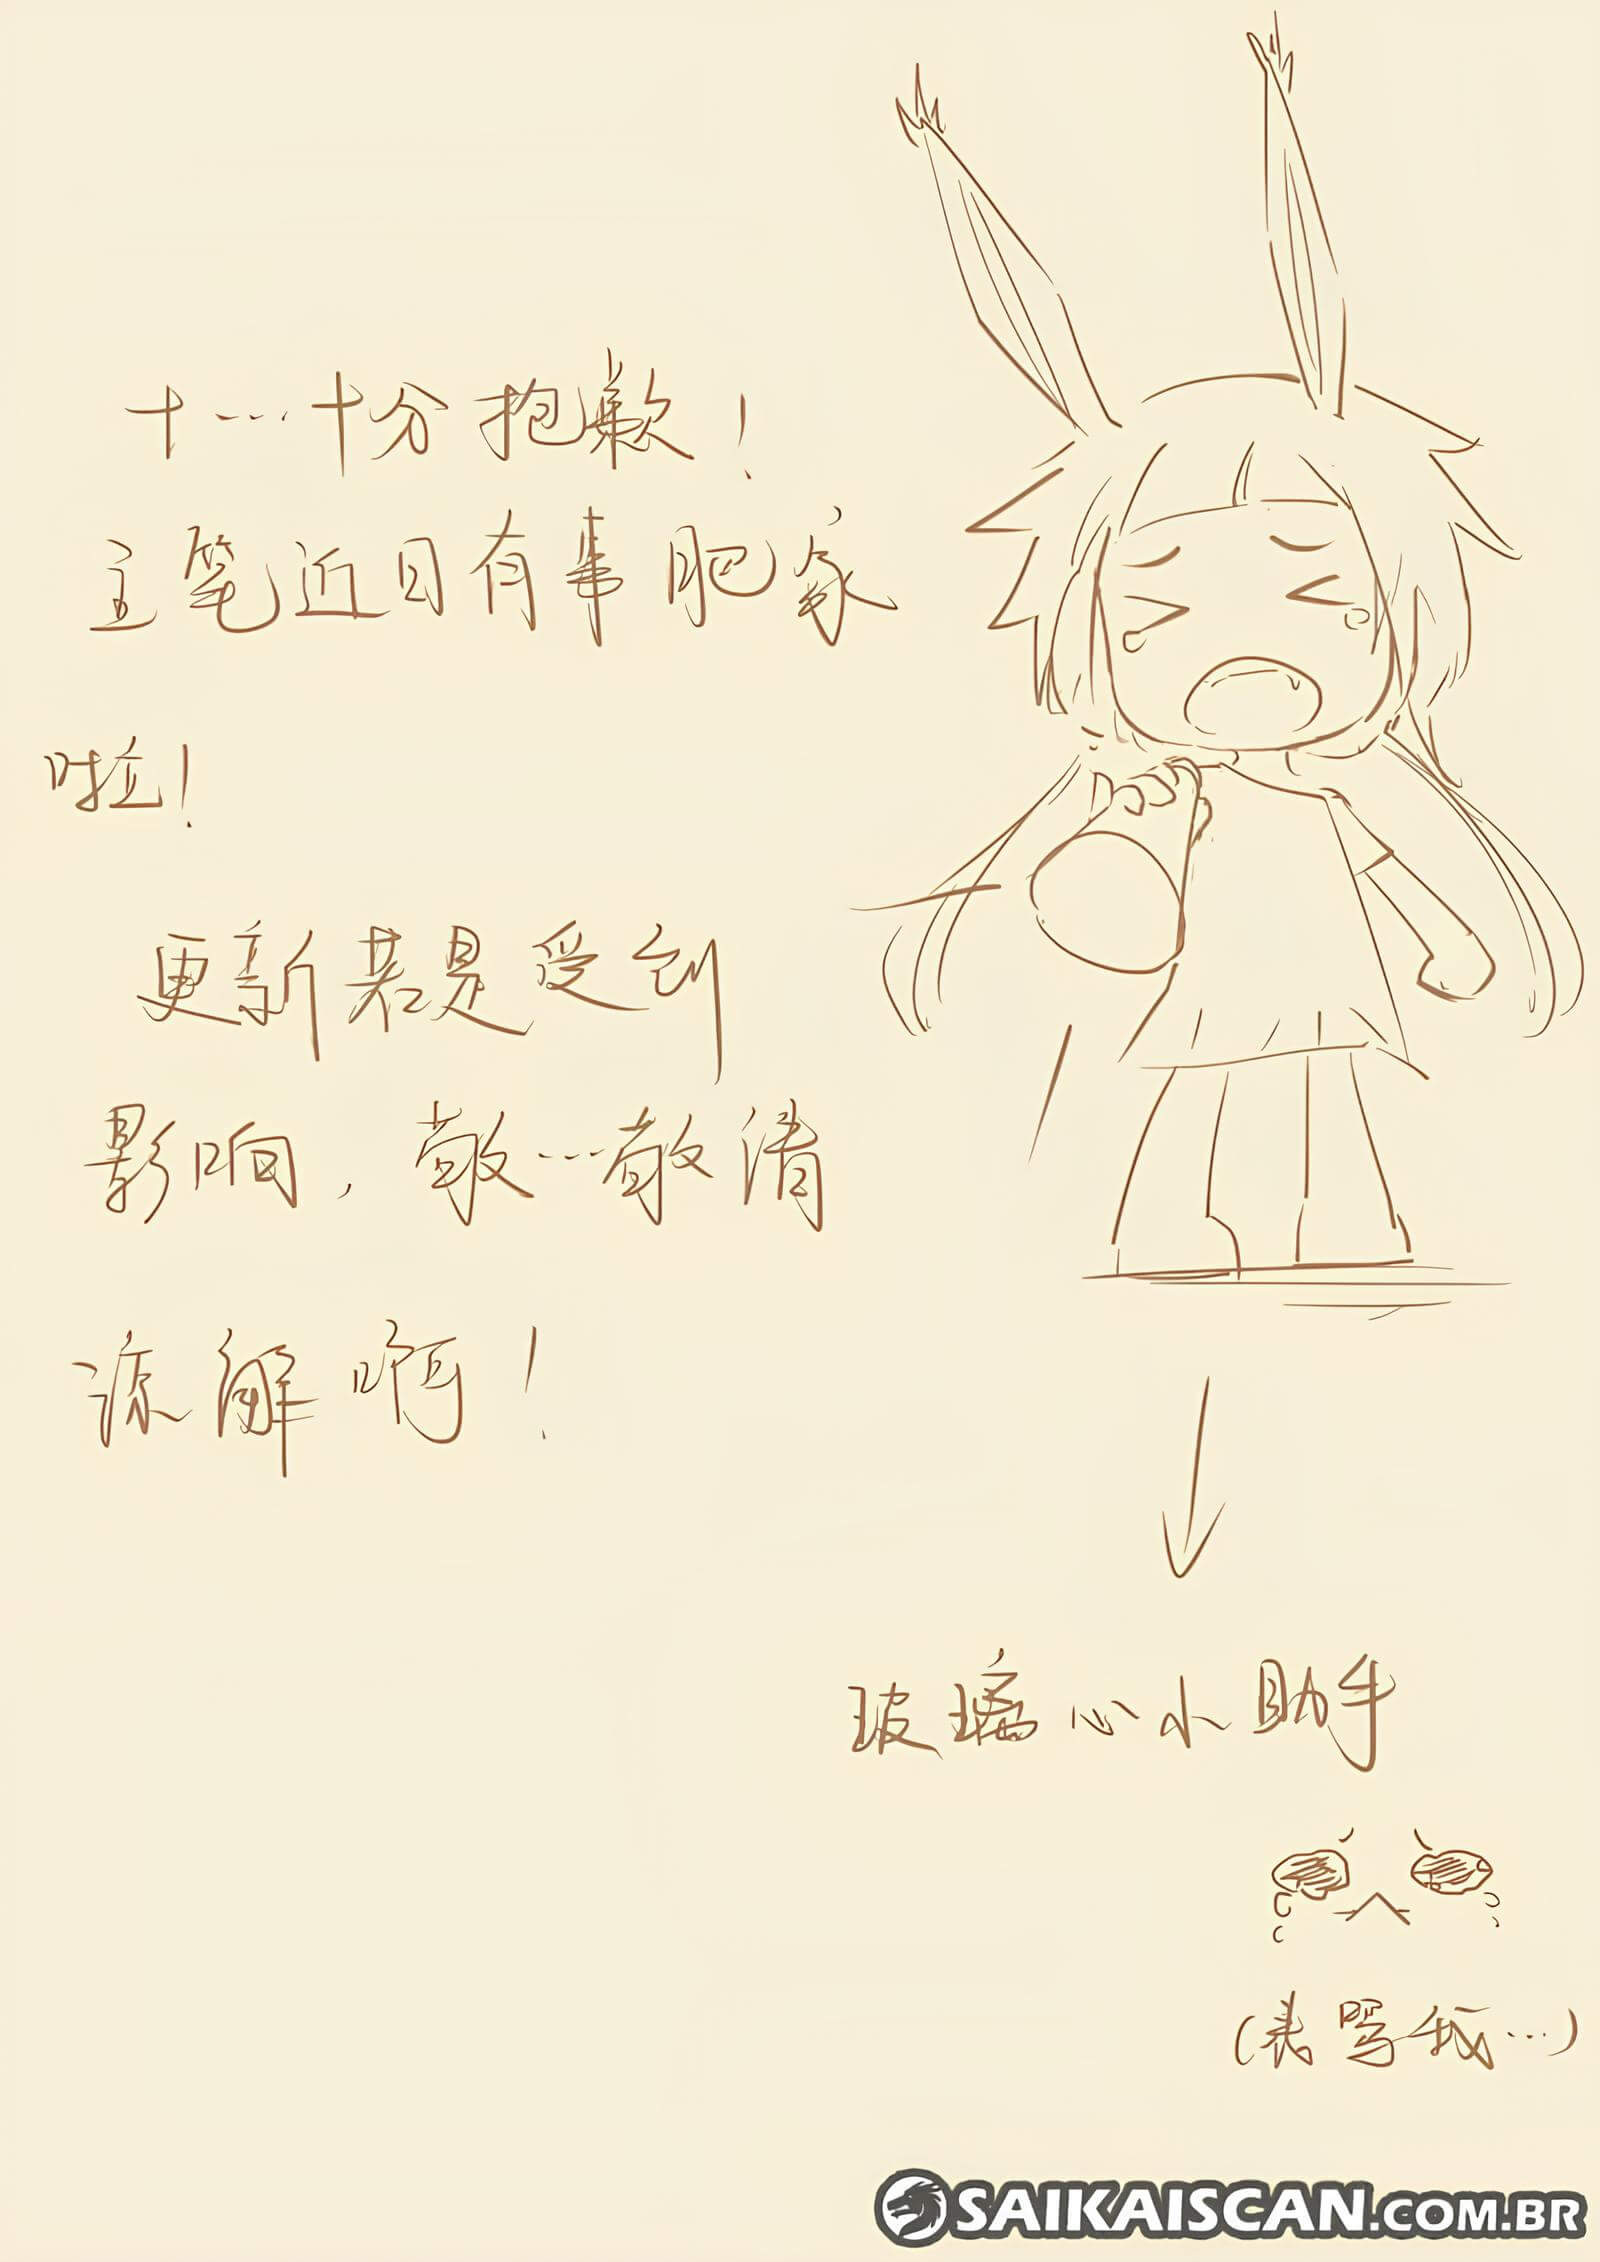 十…十分抱歉!
主笔近日有事肥家
啦!
更新若是受到
影响,敬…敬请
谅解啊!
玻璃心小助手
(表骂我…)
SAIKAISCAN.COM.BR